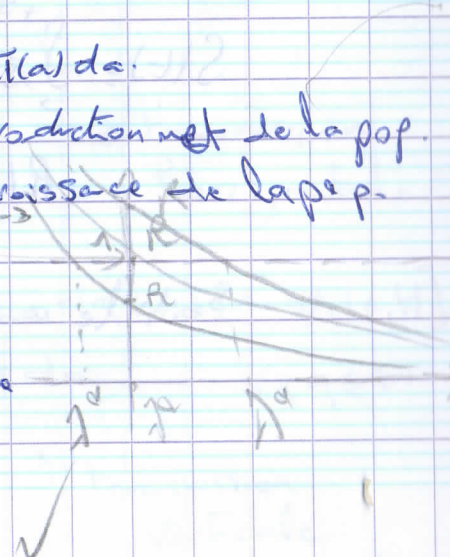 π(a) da.
oduction net de la pop.
roissance de la pop.
1 R
R
λ* λ* λ*